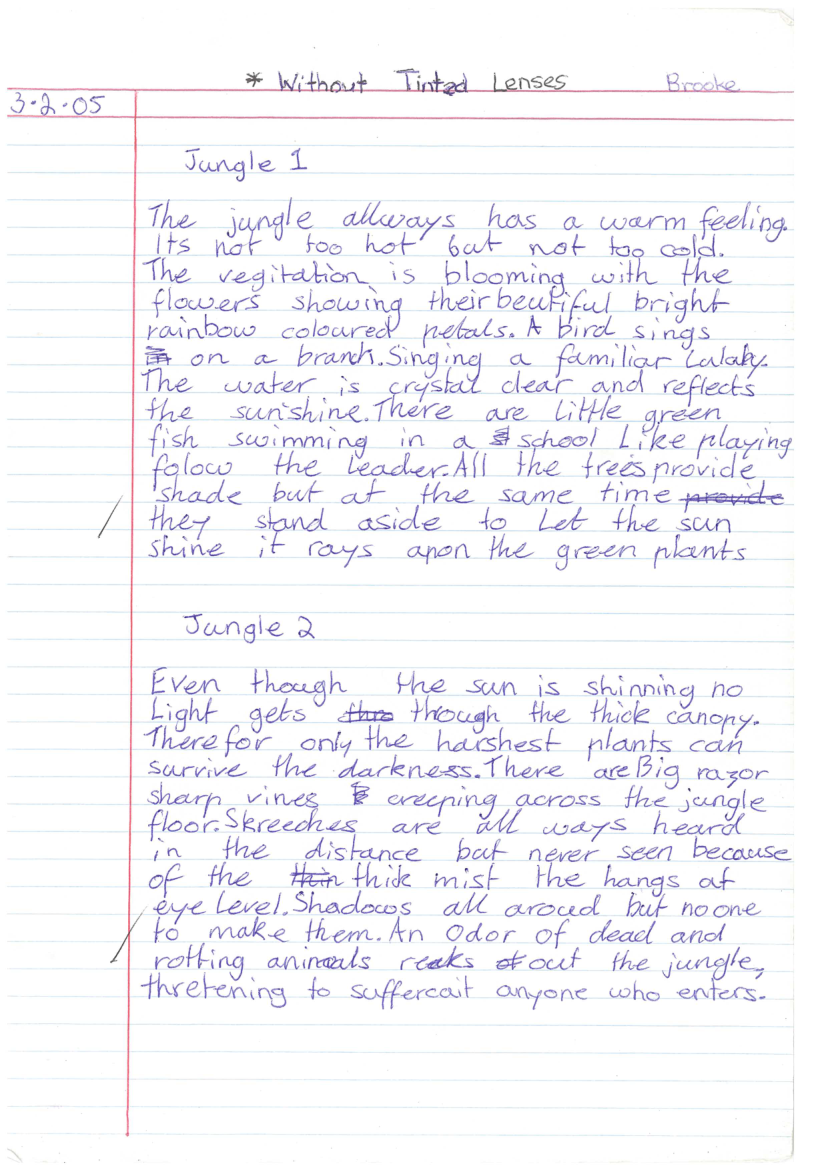 * Without Tinted Lenses Brooke
3.2.05
Jungle 1
The jungle allways has a warm feeling.
Its not too hot but not too cold.
The vegitation is blooming with the
flowers showing their beutiful bright
rainbow coloured petals. A bird sings
on a branch. Singing a familiar Lulaby.
The water is crystal clear and reflects
the sunshine. There are little green
fish swimming in a school Like playing
folow the leader. All the trees provide
shade but at the same time provide
they stand aside to Let the sun
shine it rays apon the green plants
Jungle 2
Even though the sun is shinning no
Light gets thro through the thick canopy.
Therefor only the harshest plants can
survive the darkness. There are Big razor
sharp vines creeping across the jungle
floor. Skreeches are all ways heard
in the distance but never seen because
of the thin thick mist the hangs at
eye Level. Shadows all aroud but no one
to make them. An Odor of dead and
rotting animals reaks out the jungle,
thretening to suffercait anyone who enters.